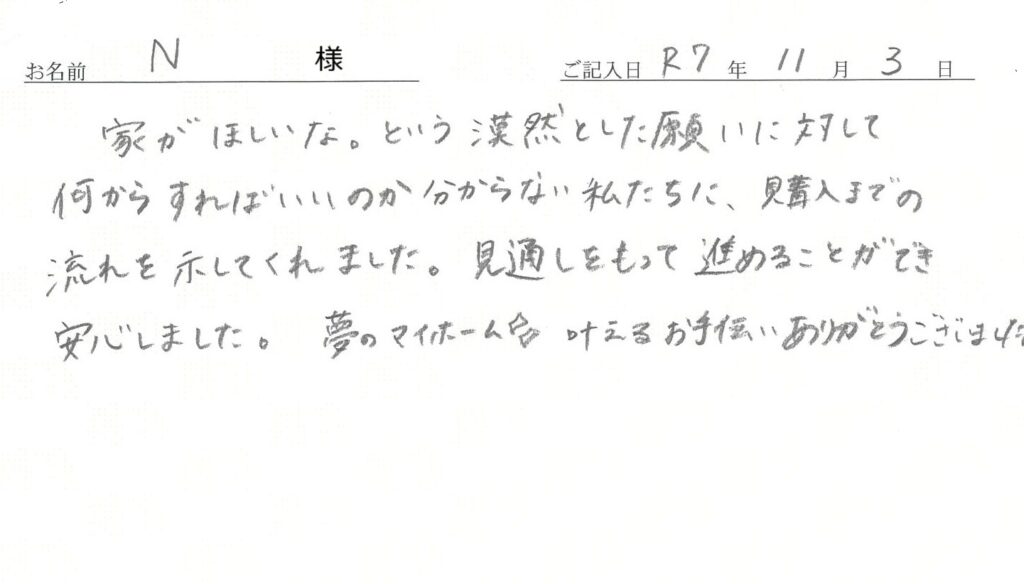 お名前 N 様 ご記入日 R7 年 11 月 3 日
家がほしいな。という漠然とした願いに対して
何からすればいいのか分からない私たちに、購入までの
流れを示してくれました。見通しをもって進めることができ
安心しました。 夢のマイホーム☆ 叶えるお手伝いありがとうございました